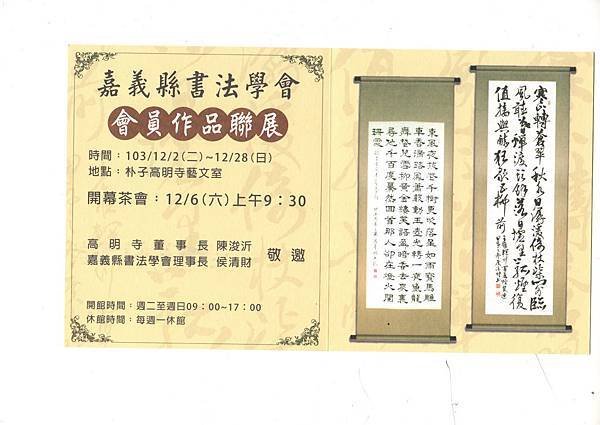 嘉義縣書法學會
會員作品聯展
時間：103/12/2(二)~12/28(日)
地點：朴子高明寺藝文室
開幕茶會：12/6(六)上午9：30
高明寺董事長 陳浚沂
嘉義縣書法學會理事長 侯清財
敬邀
開館時間：週二至週日09：00~17：00
休館時間：每週一休館
寒山轉蒼翠秋水日潺湲倚杖柴門外臨
風聽暮蟬渡頭餘落日墟里上孤煙復
值接輿醉狂歌五柳前
東風夜放花千樹更吹落星如雨寶馬雕
車香滿路鳳簫聲動玉壺光轉一夜魚龍
舞蛾兒雪柳黃金縷笑語盈暗香去眾裏
尋他千百度驀然回首那人卻在燈火闌
珊處